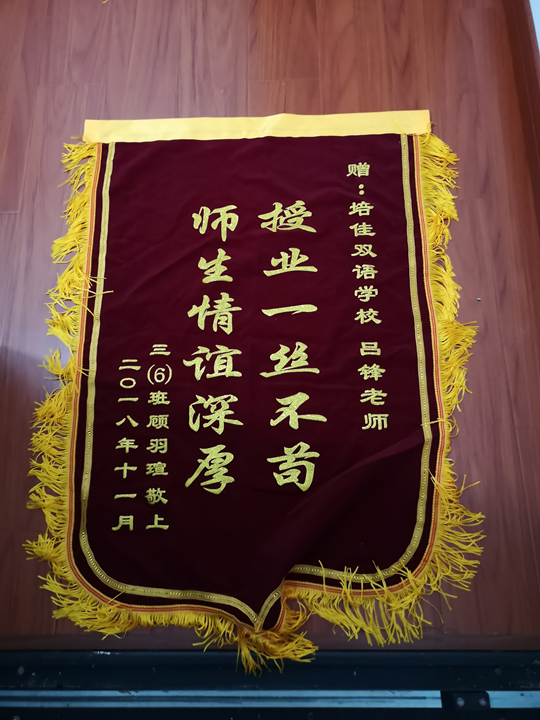 赠：培佳双语学校 吕锋老师
授业一丝不苟
师生情谊深厚
三(6)班顾羽瑄敬上
二〇一八年十一月